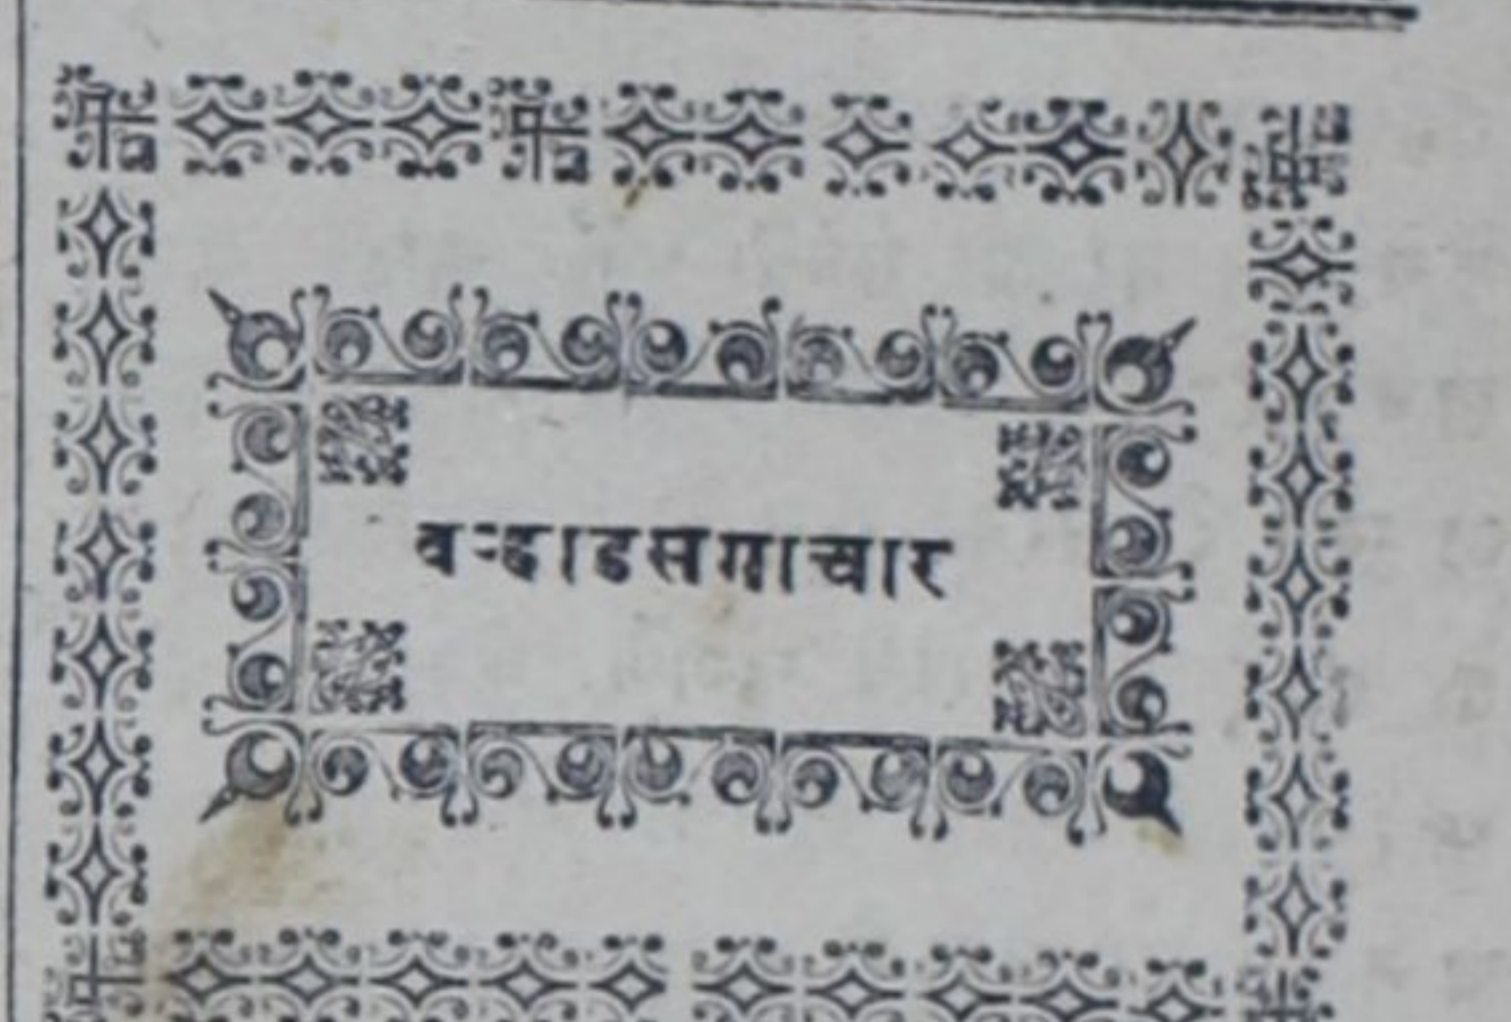 वऱ्हाडसमाचार